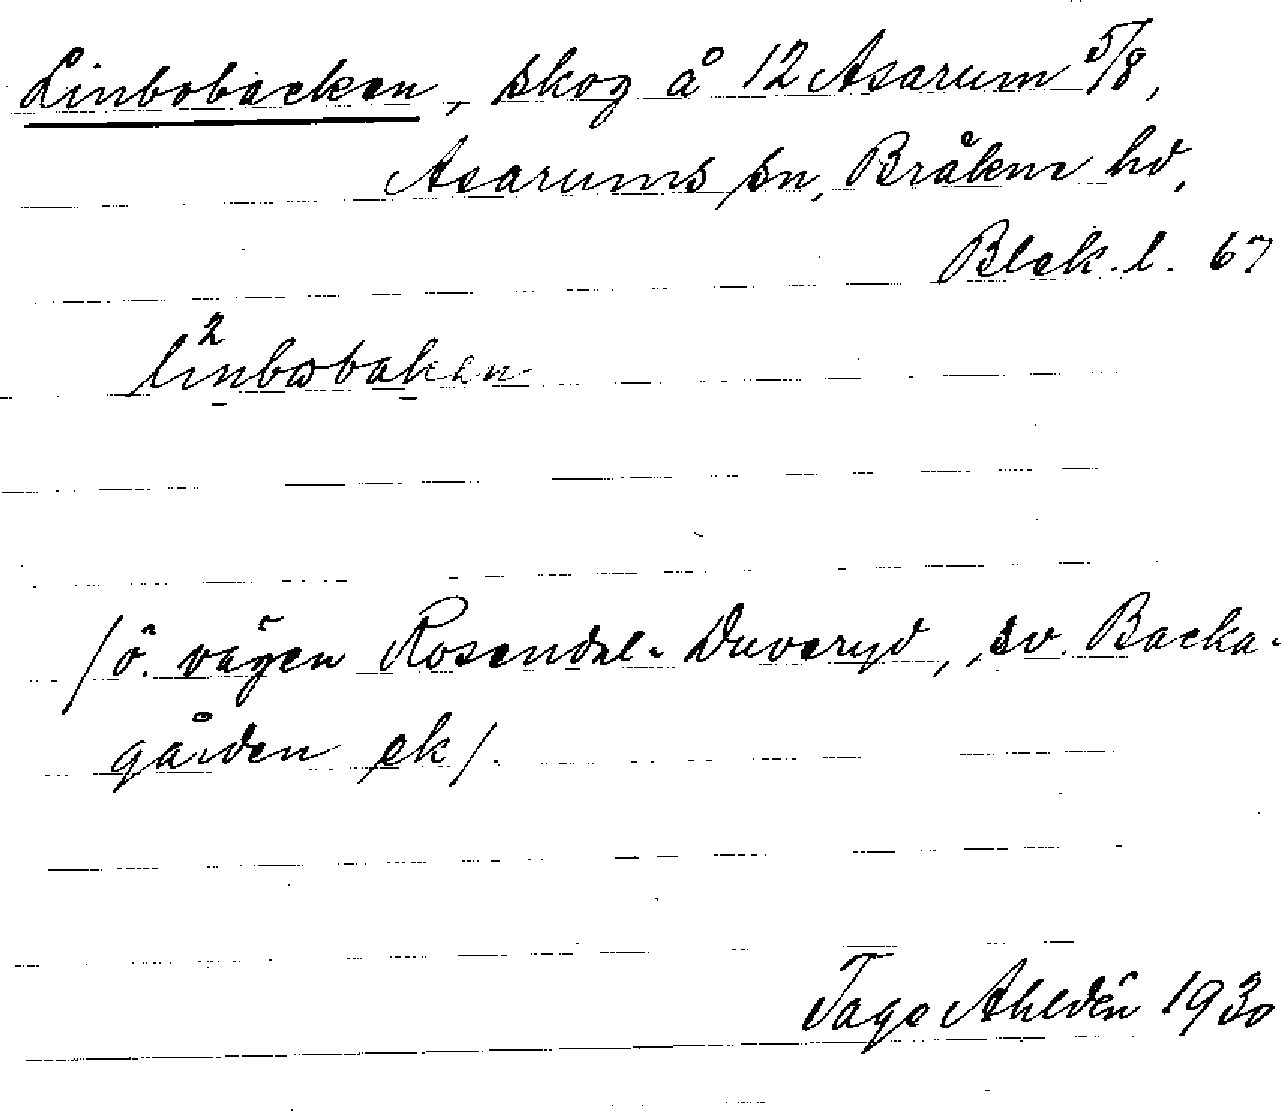 Linbobacken, skog å 12 Asarum 5/8,
Asarums sn, Bräkne hd,
Blek. l. 67
/ö. vägen Rosendal-Duveryd, sv. Backa-
gården ek/.
Tage Ahldén 1930